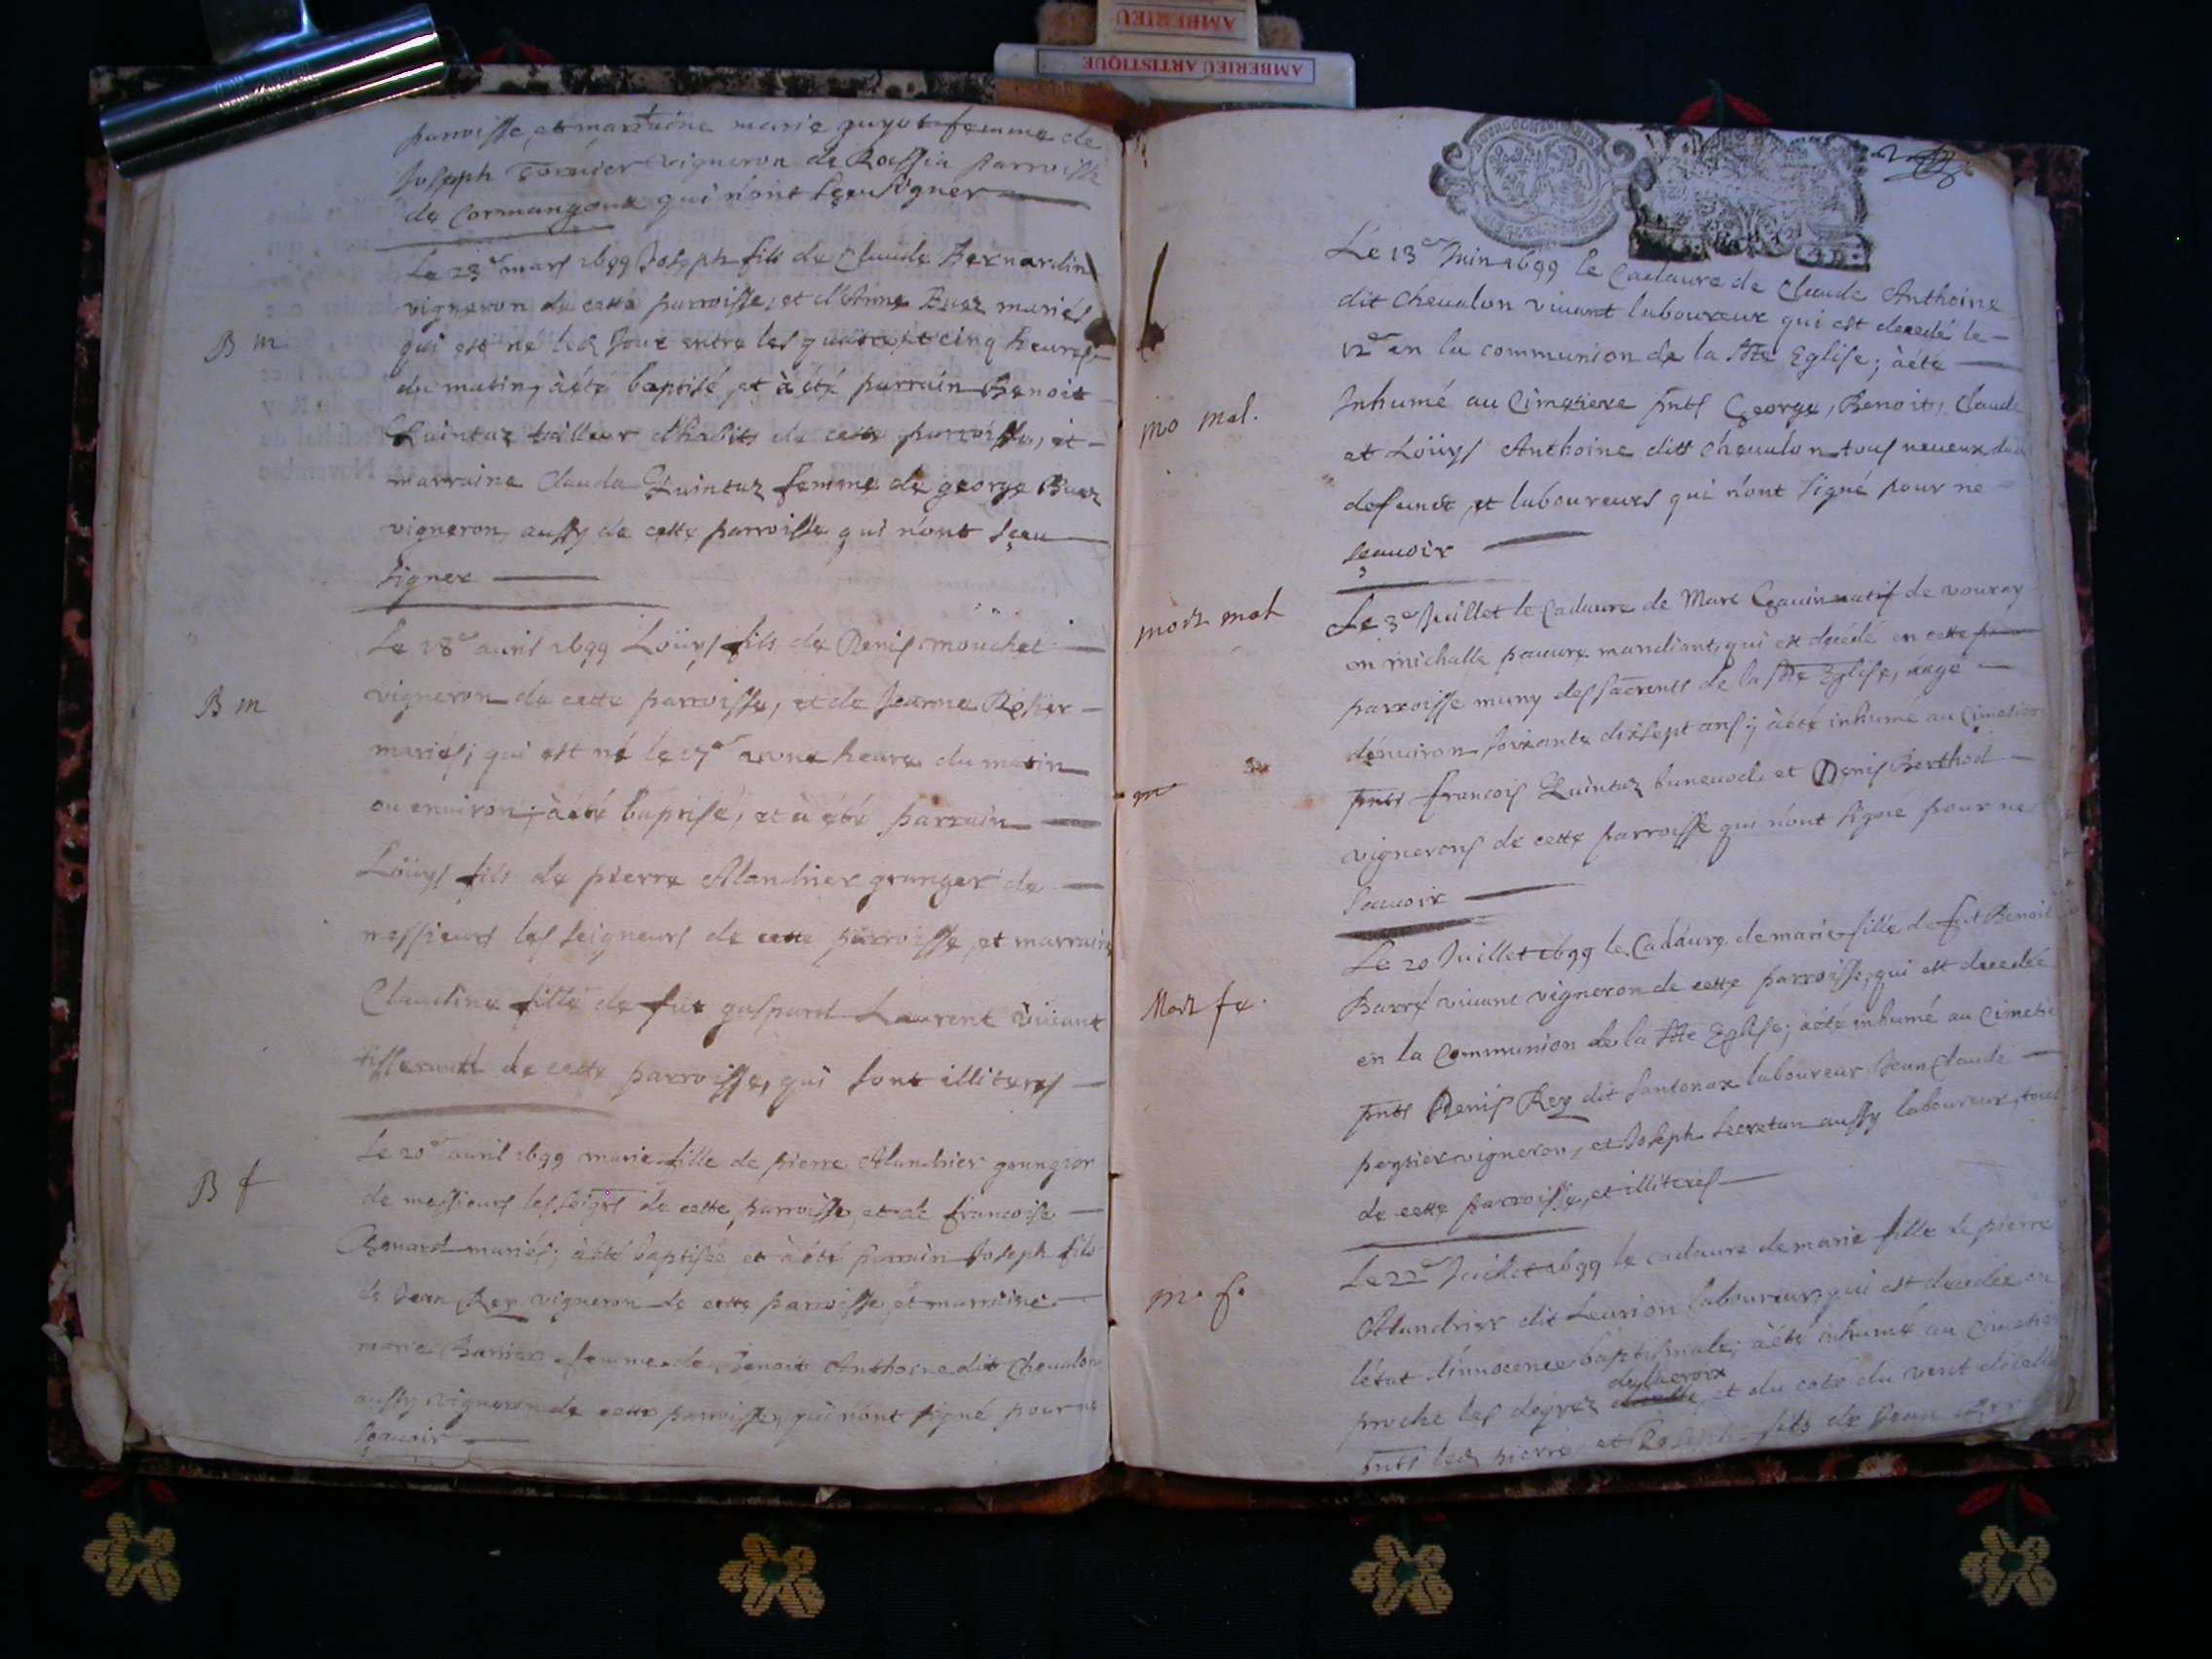 AMBERIEU
AMBERIEU ARTISTIQUE
parroisse, et marraine marie guyot femme de
Joseph vigneron de Rossia parroisse
de Cormangoux qui n'ont sçeu signer
Le 23e mars 1699 Joseph fils de Claude Bernardin
vigneron de cette parroisse, et d'Anne Buaz mariés
qui est né led jour entre les quatre et cinq heures
du matin, à été baptisé, et à été parrain Benoit
Quintaz tailleur d'habits de cette parroisse, et
marraine Clauda Quintaz femme de george Buaz
vigneron, aussy de cette parroisse qui n'ont sçeu
signer
B m
Le 18e avril 1699 Loüys fils de Denis moüchet
vigneron de cette parroisse, et de Jeanne Rosier
mariés; qui est né le 17e a une heure du matin
ou environ; à été baptisé, et à été parrain
Loüys fils de pierre Alandrier granger de
messieurs les seigneurs de cette parroisse, et marraine
Claudine fille de fut gaspard Laurent vivant
tisserand de cette parroisse, qui sont illiterés
B m
Le 20e avril 1699 marie fille de pierre Alandrier granger
de messieurs les seigrs de cette parroisse, et de francoise
mariés; à été baptisée et à été parrain Joseph fils
de Jean Rey vigneron de cette parroisse, et marraine
marie femme de Benoit Anthoine dit Chevalon
aussy vigneron de cette parroisse, qui n'ont signé pour ne
sçavoir
B f
Le 13e Juin 1699 le Cadavre de Claude Anthoine
dit chevalon vivant laboureur qui est decedé le
12e en la communion de la Ste Eglise; à été
Inhumé au Cimetiere pnts George, Benoit, Claude
et Loüys Anthoine dits chevalon tous neveux dud
defunct, et laboureurs qui n'ont signé pour ne
sçavoir
mo mal.
Le 3e Juillet le Cadavre de Marc natif de vouray
en michaille pauvre mandiant, qui est decedé en cette
parroisse muny des sacrents de la Ste Eglise, aagé
d'environ soixante dixsept ans; à été inhumé au Cimetiere
pnts francois Quintaz et Denis Berthod
vignerons de cette parroisse qui n'ont signé pour ne
sçavoir
mort mal
m
Le 20 Juillet 1699 le Cadavre de marie fille de fut Benoit
Barré vivant vigneron de cette parroisse, qui est decedée
en la Communion de la Ste Eglise; à été inhumé au Cimetie
pnts Denis Rey dit santonax laboureur, Jean Claude
peysier vigneron, et Joseph secretan aussy laboureur, tous
de cette parroisse, et illiterés
Mort fe.
Le 22e Juillet 1699 le cadavre de marie fille de pierre
Alandrier dit Leurion laboureur, qui est decedée en
l'état d'innocence baptismale; à été inhumé au Cimetier
proche les degrez de la croix et du coté du vent d'icelle
pnts led pierre, et Joseph fils de Jean
m. f.